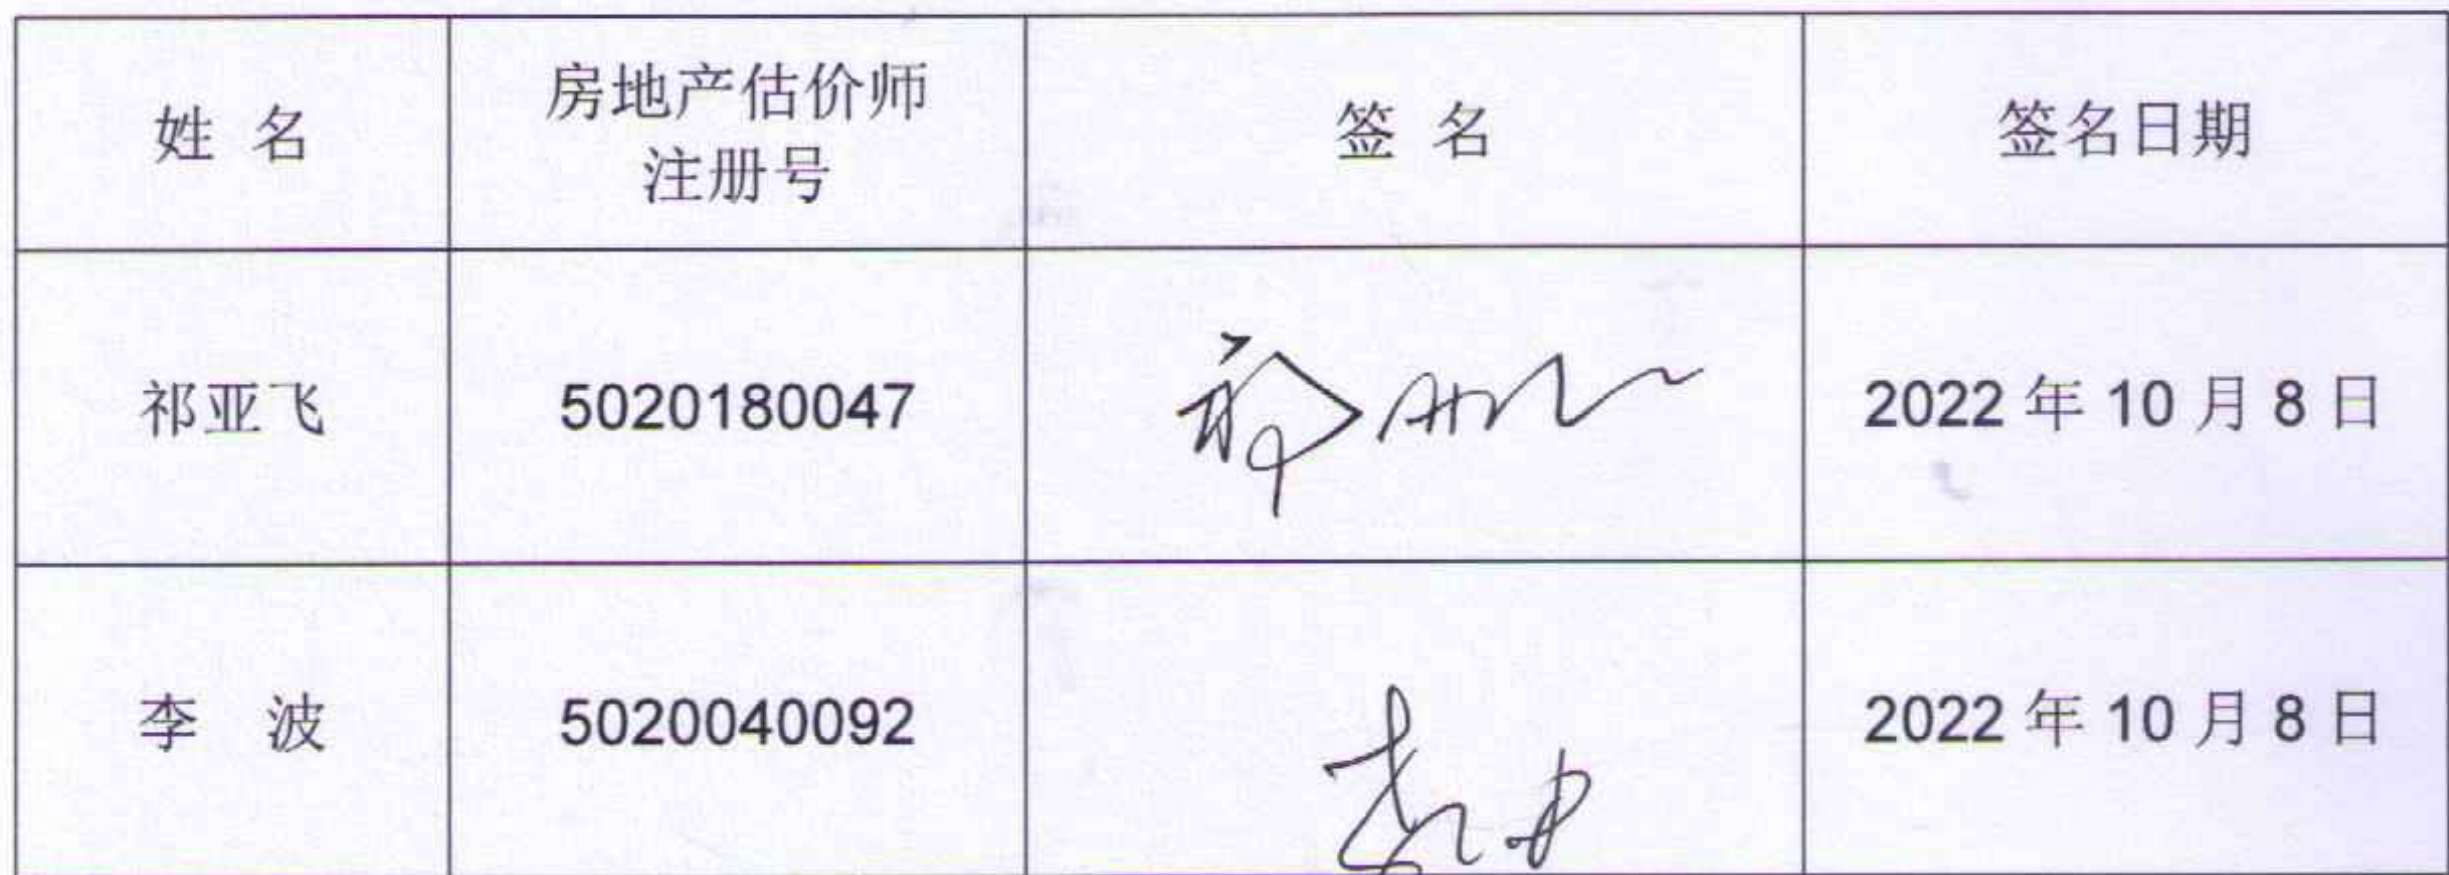 姓 名
房地产估价师
注册号
签 名
签名日期
祁亚飞
5020180047
2022 年 10 月 8 日
李 波
5020040092
2022 年 10 月 8 日